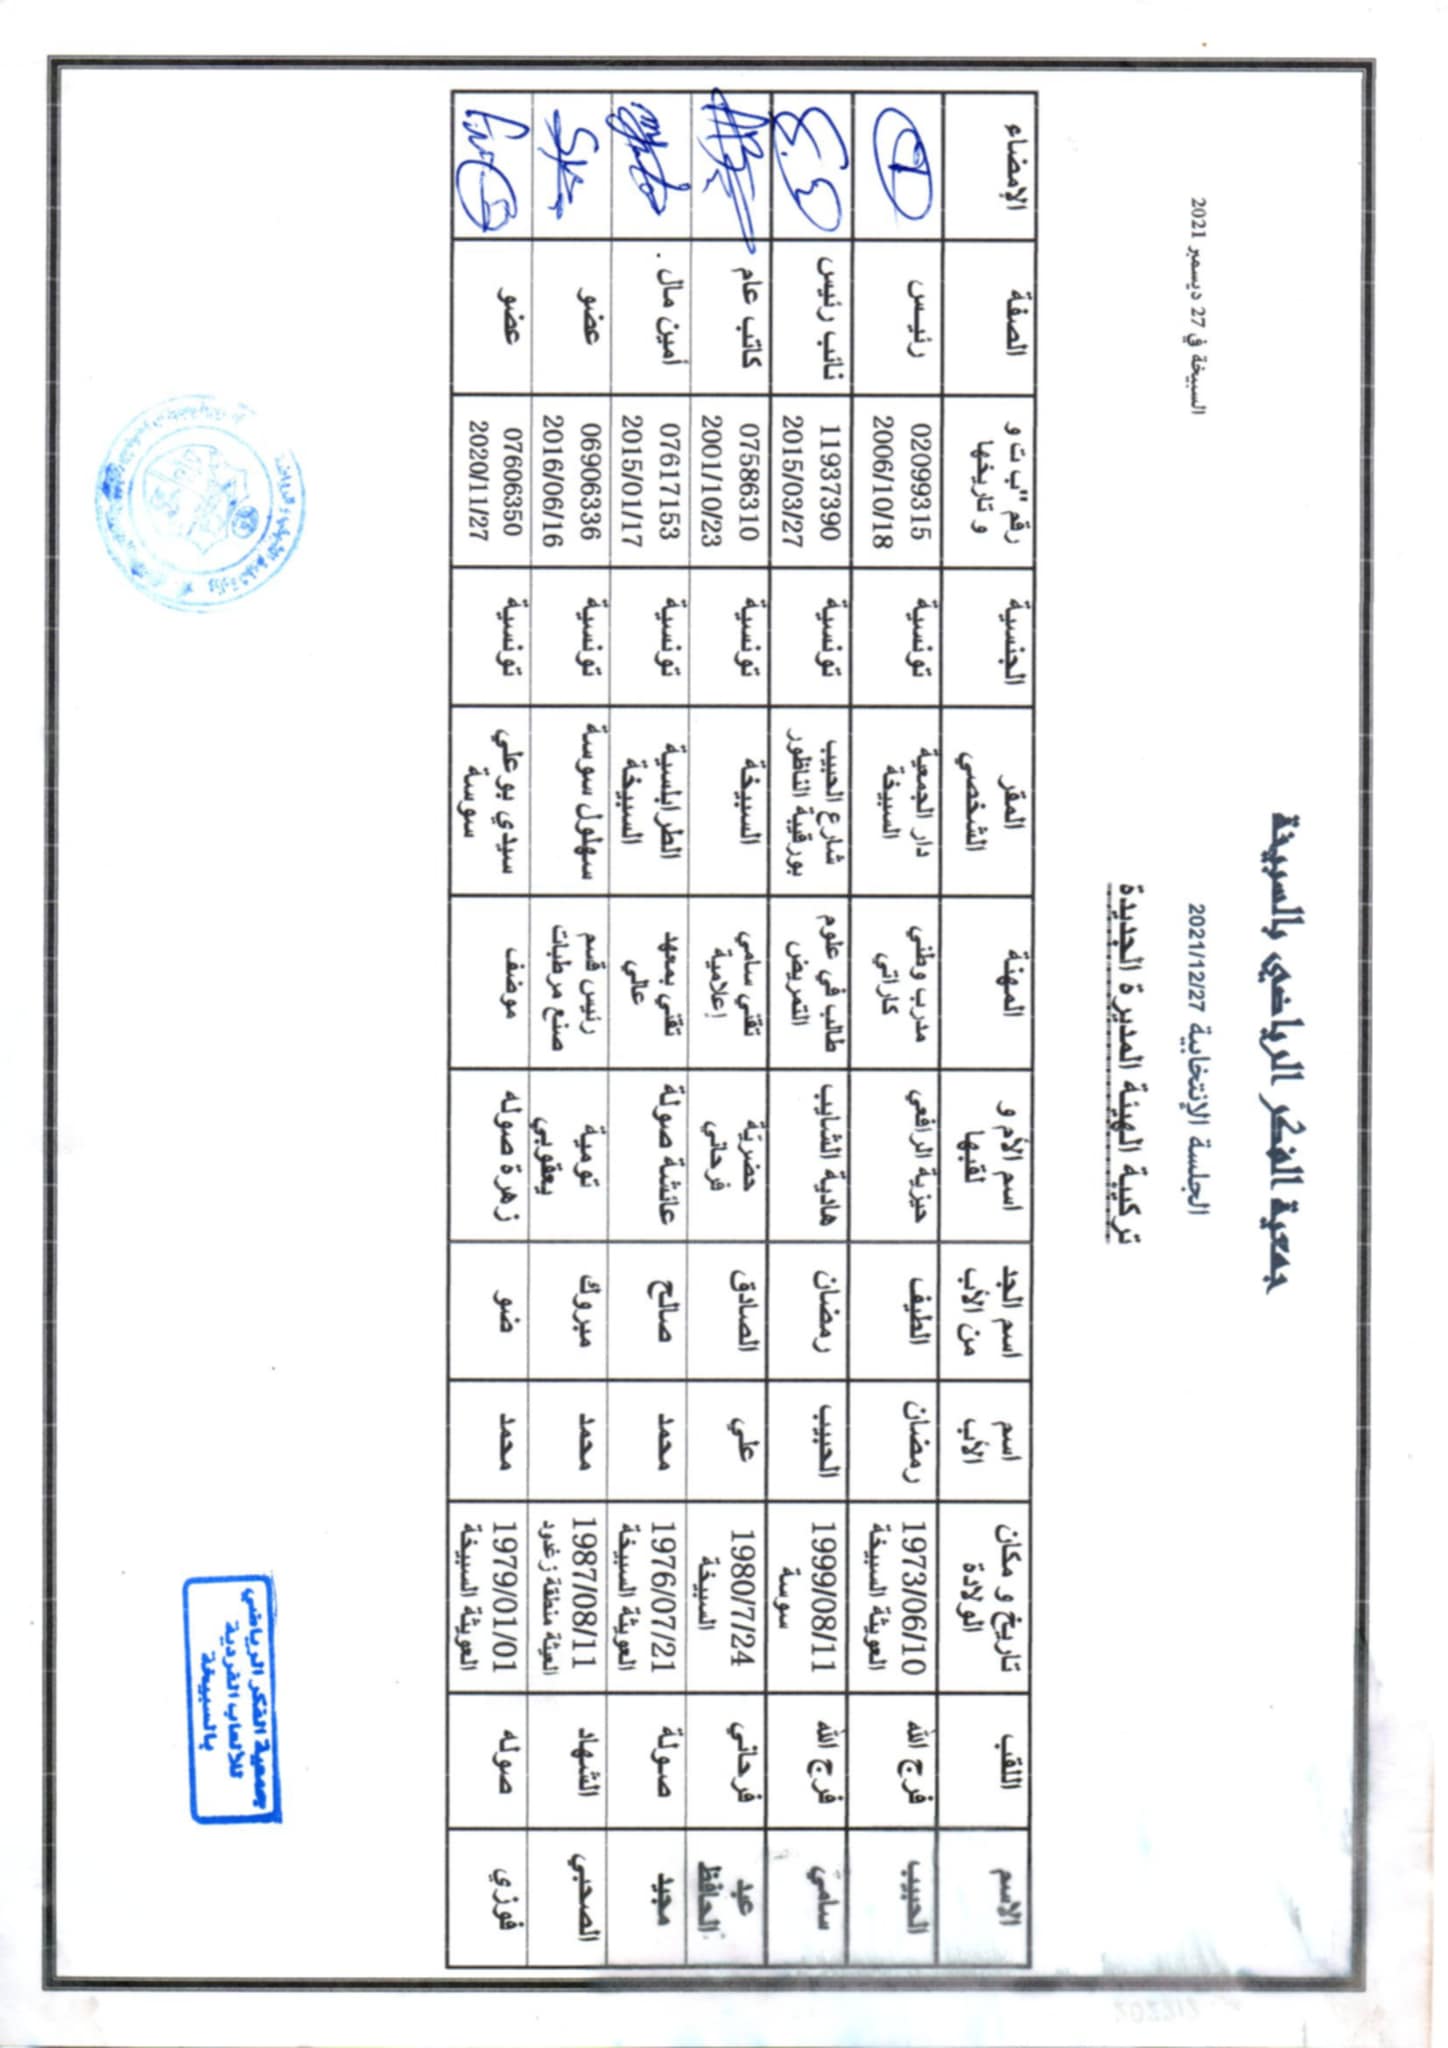 جمعية الفكر الرياضي بالسبيخة
السبيخة في 27 ديسمبر 2021
الجلسة الإنتخابية 2021/12/27
تركيبة الهيئة المديرة الجديدة
الاسم | اللقب | تاريخ و مكان الولادة | اسم الأب | اسم الجد من الأب | اسم الأم و لقبها | المهنة | المقر الشخصي | الجنسية | رقم "ب ت و و تاريخها | الصفة | الإمضاء
الحبيب | فرج الله | 1973/06/10 العويثة السبيخة | رمضان | الطيف | حيزية الرافعي | مدرب وطني كاراتي | دار الجمعية السبيخة | تونسية | 02099315 2006/10/18 | رئيس
سامي | فرج الله | 1999/08/11 سوسة | الحبيب | رمضان | هادية الشايب | طالب في علوم التمريض | شارع الحبيب بورقيبة الناظور | تونسية | 11937390 2015/03/27 | نائب رئيس
عبد الحافظ | فرحاني | 1980/7/24 السبيخة | علي | الصادق | حضرية فرحاني | تقني سامي إعلامية | السبيخة | تونسية | 07586310 2001/10/23 | كاتب عام
مجيد | صولة | 1976/07/21 العويثة السبيخة | محمد | صالح | عائشة صولة | تقني بمعهد عالي | الطرابلسية السبيخة | تونسية | 07617153 2015/01/17 | أمين مال .
الصحبي | الشهاد | 1987/08/11 العيثة منطقة زغدود | محمد | مبروك | تومية يعقوبي | رئيس قسم صنع مرطبات | سهلول سوسة | تونسية | 06906336 2016/06/16 | عضو
فوزي | صوله | 1979/01/01 العويثة السبيخة | محمد | ضو | زهرة صوله | موضف | سيدي بوعلي سوسة | تونسية | 07606350 2020/11/27 | عضو
جمعية الفكر الرياضي
للألعاب الفردية
بالسبيخة